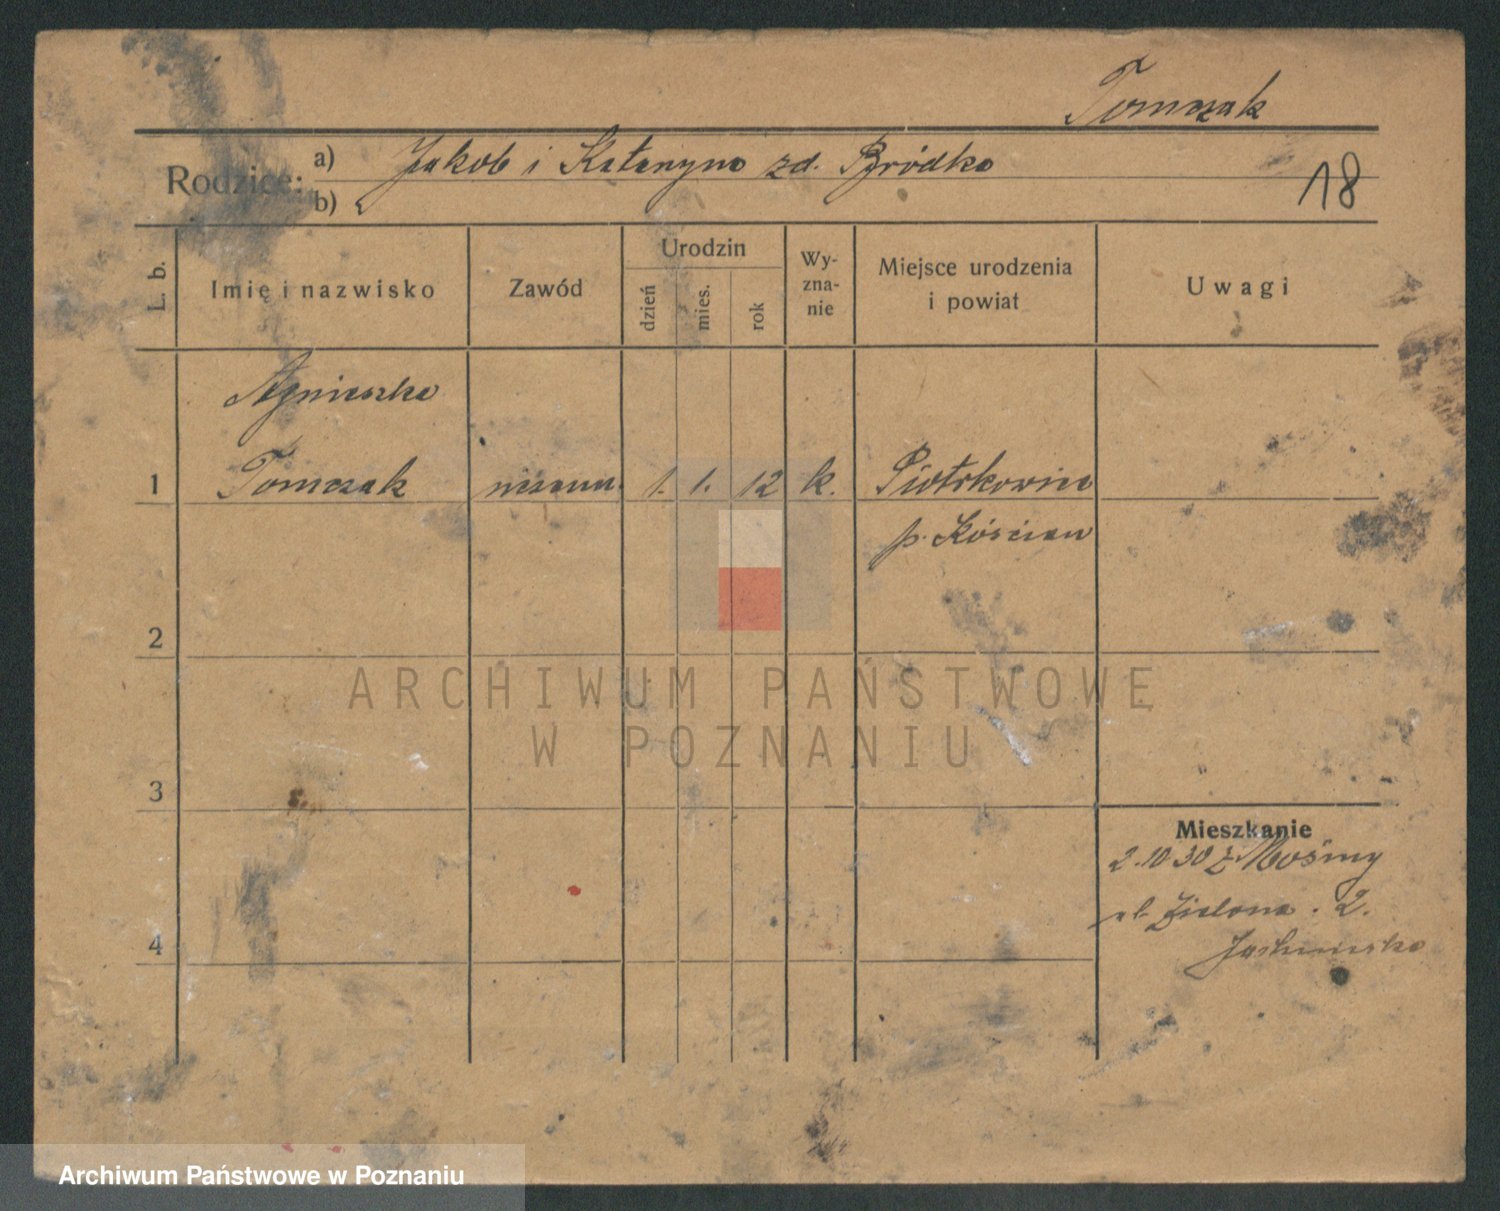 Tomczak
Rodzice: a) Jakob i Katarzyna zd. Bródka
b)
18
L. b. Imię i nazwisko Zawód Urodzin dzień mies. rok Wyznanie Miejsce urodzenia i powiat Uwagi
Agnieszka
1 Tomczak 1. 1. 12 k. Piotrkowice
p. Kościan
2
ARCHIWUM PAŃSTWOWE
W POZNANIU
3
Mieszkanie
2.10 30 z Mosiny
ul. Zielona . 2.
4
Archiwum Państwowe w Poznaniu